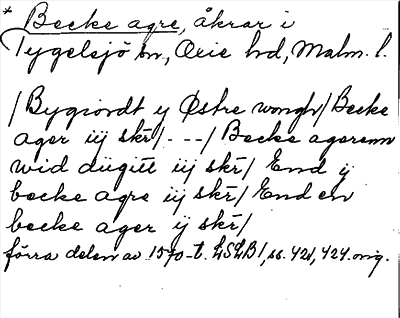 * Becke agre, åkrar i
Tygelsjö sn, Oxie hd, Malm. l.
/Bygiordt ij Østre wongh/Becke
ager iij skr/. ---/ Becke agerenn
wid diigitt iij skr/ End ij
becke agre iij skr/ End en
becke ager ij skr/
förra delen av 1570-t. LSLB1, ss. 421, 424 orig.